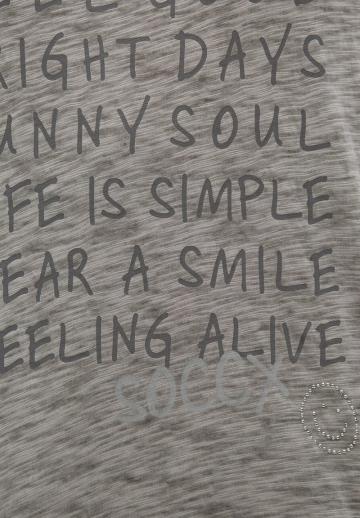 RIGHT DAYS
UNNY SOUL
FE IS SIMPLE
EAR A SMILE
EELING ALIVE
SOCCX